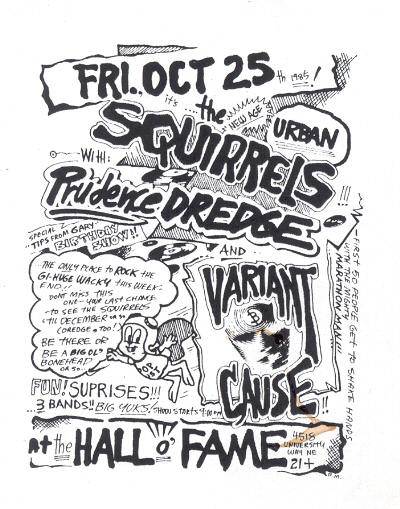 FRI., OCT 25th 1985!
it's the NEW AGE URBAN
SQUIRRELS
WITH:
Prudence DREDGE
SPECIAL TIPS FROM GARY
BIRTHDAY SHOW!!
AND
VARIANT
CAUSE!!
THE ONLY PLACE TO ROCK THE
GI-HUGE WACKY THIS WEEK-
END!!
DONT MISS THIS
ONE - YOUR LAST CHANCE
TO SEE THE SQUIRRELS
'TIL DECEMBER OR SO
(DREDGE TOO!)
BE THERE OR
BE A BIG OL'
BONEHEAD
OR SO...
8
FUN! SUPRISES!!!
...3 BANDS!! BIG YUKS! SHOW STARTS 9:00 PM
FIRST 50 PEOPLE GET TO SHAKE HANDS
WITH THE MIGHTY
MARATHON MAN!!!
At the HALL O' FAME
4518
UNIVERSITY
WAY NE
21+